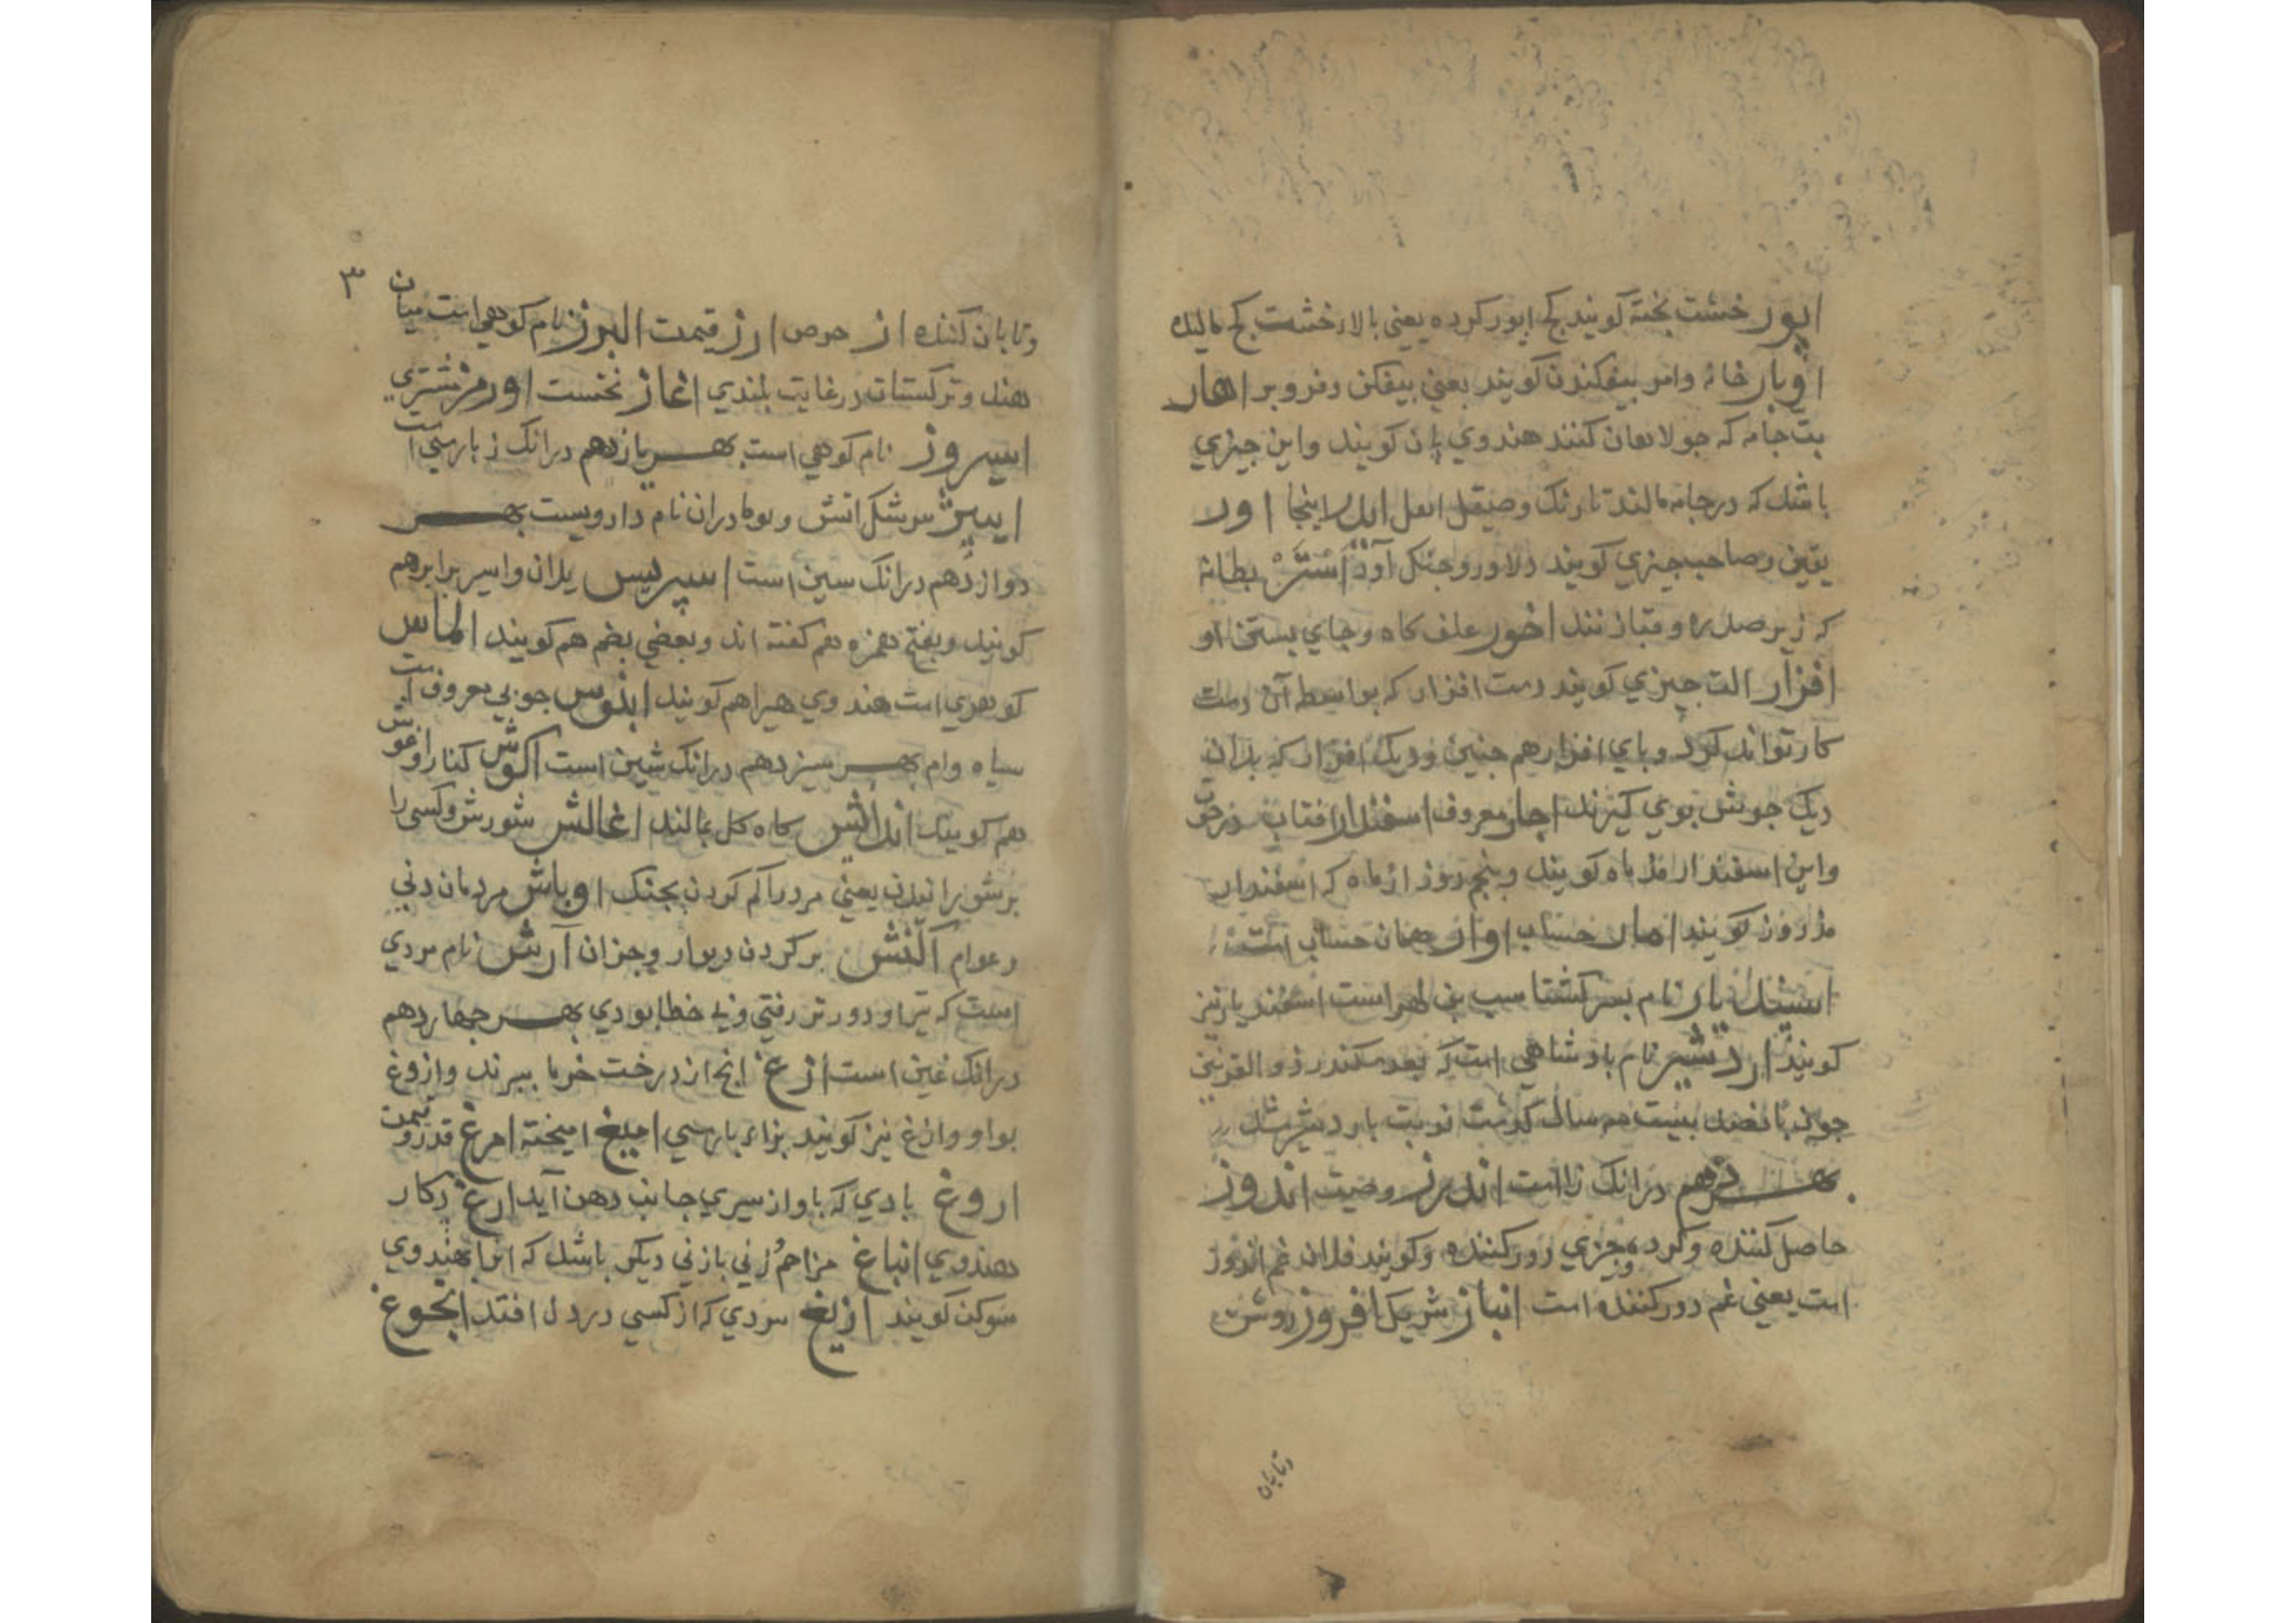 اپور خشت پخته کویند کج اپور کرده یعنی بالار خشت کج مالیده
اوبار خانه وامر بیفکندن کویند یعنی بیفکن وفروبر اهار
بت جامه که جولاهان کنند هندوی پان کویند واین چیزی
باشد که در جامه مالند تا رنک وصیقل اینجا اور
یقین وصاحب چیزی کویند دلاور وجنک آور اَسْتَرْ بطانه
که زیر صدره وقبا زنند اخور علف کاه وجای بستن او
افزار الت چیزی کویند دست افزار که بواسطه آن دست
کار تواند کرد وپای افزار هم چنین ودیک افزار که بدان
دیک خوش بوی کیرند اچار معروف اسفندار افتاب در حوت
واین اسفندار مذ ماه کویند وپنجم روز از ماه که اسفندار
مذ روز کویند امار حساب اوار همان حساب است
اسفندیار نام پسر کشتاسب بن لهراست اسفندیار نیز
کویند اردشیر نام بادشاهی است که بعد سکندر ذو القرنین
چون پانصد بیست سال کذشت نوبت باردشیر شد
بهر دهم درانک زا است اندرز وصیت اندوز
حاصل کننده وکرد وچیزی دور کننده وکویند فلان غم اندوز
است یعنی غم دور کننده است انباز شریک افروز روشن
وتابان
۳
وتابان کننده از حرص ارز قیمت البرز نام کوهی است میان
هند وترکستان درغایت بلندی اغاز نخست اورمز مشتری
اسپروز نام کوهی است بهر یازدهم درانک ز پارسی است
ایپیژ سرشک اتش وبومادران نام دارویست بهر
دوازدهم درانک سین است اسپریس یلان واسپر برابر هم
کویند وبفتح همزه هم کفته اند وبعضی بضم هم کویند الماس
کوهری است هندوی هیرا هم کویند ابنوس چوبی معروف است
سیاه وام بهر سیزدهم درانک شین است اکوش کنار واغوش
هم کویند اندایش کاه کل بمالند اغالش شورش وکسی را
بر شورانیدن یعنی مردرا کم کردن بجنک اوباش مردمان دنی
وعوام آکنش بر کردن دیوار وجزان آرش نام مردی
است که تیر او دورتر رفتی وبی خطا بودی بهر چهاردهم
درانک غین است ازغ انچ از درخت خرما ببرند وازوغ
بواو وازغ نیز کویند بزاء پارسی امیغ امیخته امرغ قدر وقیمت
اروغ بادی که باواز سیری جانب دهن آید ارغ دکار
هندوی انباغ مزاحمُ زنی بازنی دیکر باشد که انرا بهندوی
سوکن کویند ازیغ سردی که از کسی در دل افتد انجوغ